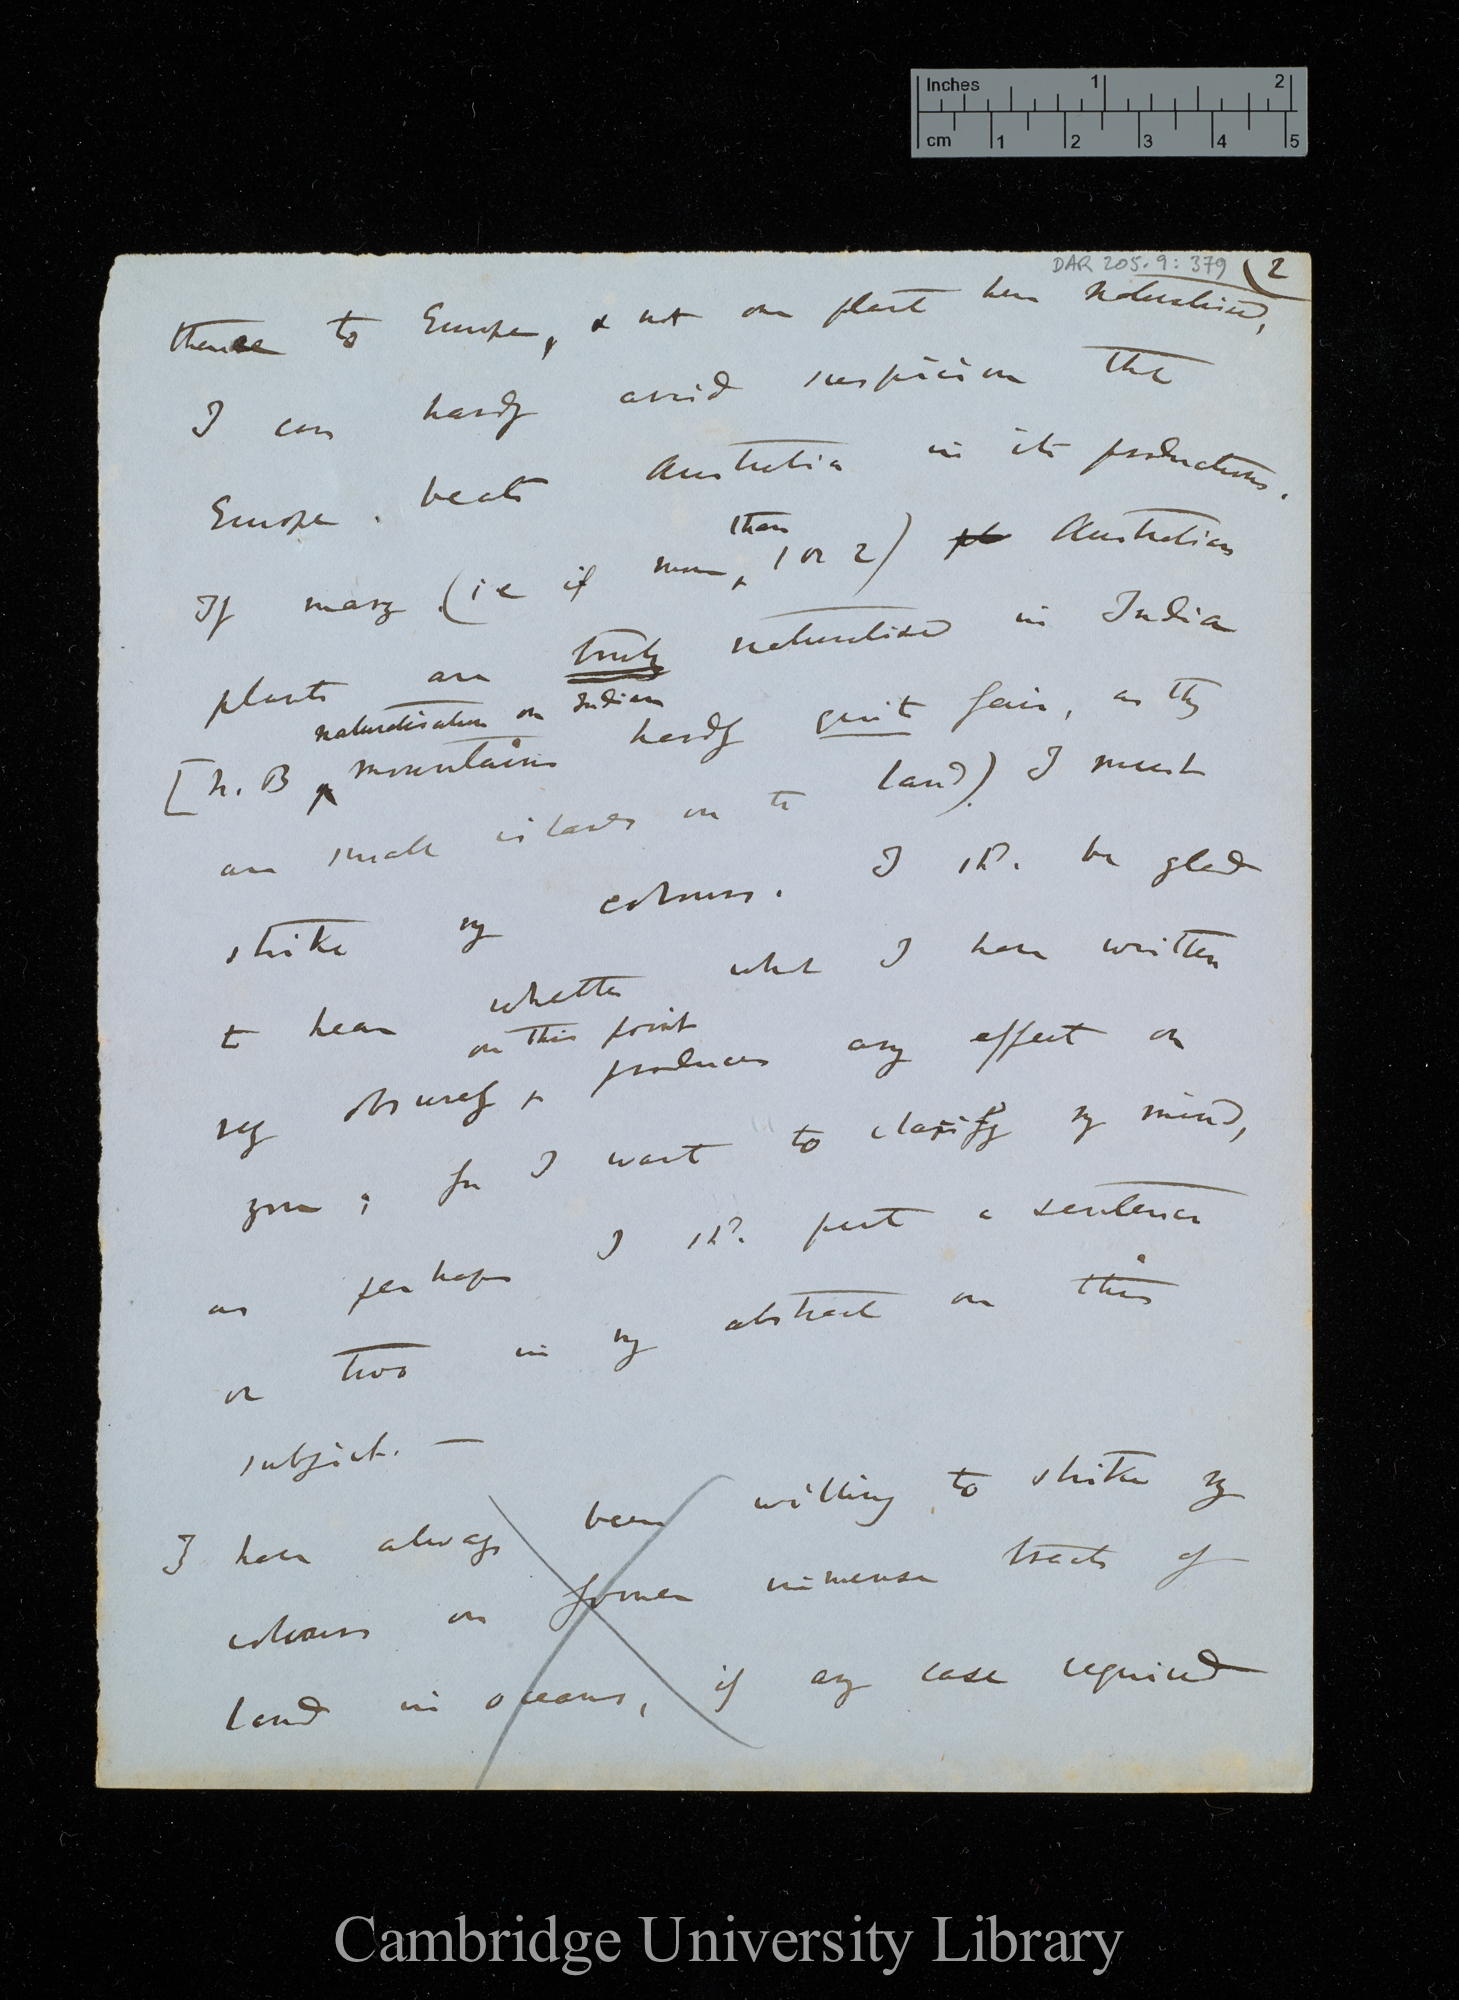 Inches 1 2
cm 1 2 3 4 5
DAR 205.9: 379 (2
thence to Europe, & not one plant here naturalised,
I can hardly avoid suspicion that
Europe beats Australia in its productions.
than
If many (ie if more 1 or 2) pl Australian
plants are truly naturalised in India
naturalisation on Indian
[N.B mountains hardly quite fair, as they
are small islands on the land) I must
strike my colours. I shd. be glad
to hear whether what I have written
on this point
very obscurely produces any effect on
you; for I want to clarify my mind,
as perhaps I shd. put a sentence
or two in my abstract on this
subject. —
I have always been willing to strike my
colours on former immense tracts of
land in oceans, if any case required
Cambridge University Library